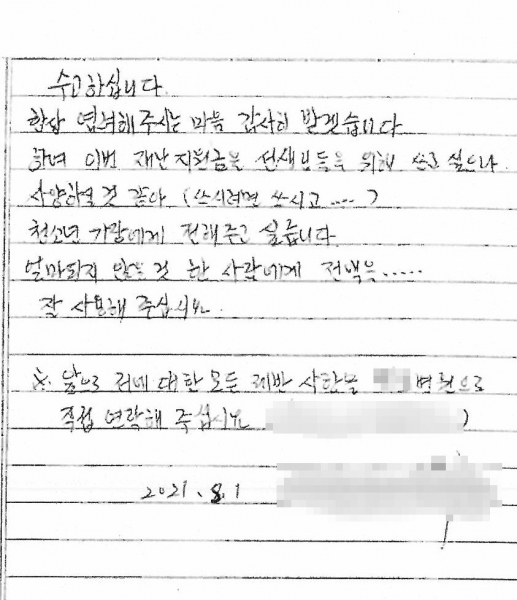 수고하십니다
항상 염려해 주시는 마음 감사히 받겠습니다
하여 이번 재난지원금을 선생님들을 위해 쓰고 싶으나
사양하실 것 같아 (쓰시려면 쓰시고 ....)
청소년 가장에게 전해주고 싶습니다
얼마되지 않는 것 한 사람에게 전액을......
잘 사용해 주십시요
※ 앞으로 저에 대한 모든 제반 사안을 병원으로
직접 연락해 주십시요 )
2021. 8. 1